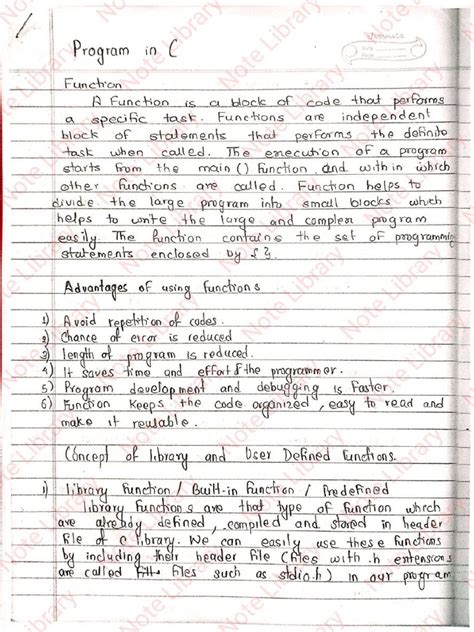 Program in C
Function
A Function is a block of code that performs
a specific task. Functions are independent
block of statements that performs the definite
task when called. The execution of a program
starts from the main () function and within which
other functions are called. Function helps to
divide the large program into small blocks which
helps to write the large and complex program
easily. The function contains the set of programming
statements enclosed by { }.
Advantages of using functions
1) Avoid repetition of codes.
2) Chance of error is reduced
3) length of program is reduced.
4) It saves time and effort of the programmer.
5) Program development and debugging is faster.
6) Function keeps the code organized, easy to read and
make it reusable.
Concept of library and User Defined Functions.
i) library function / Built-in function / Predefined
library functions are that type of function which
are already defined, compiled and stored in header
file of C library. We can easily use these functions
by including their header file (files with .h extensions
are called files such as stdio.h) in our program
Note Library